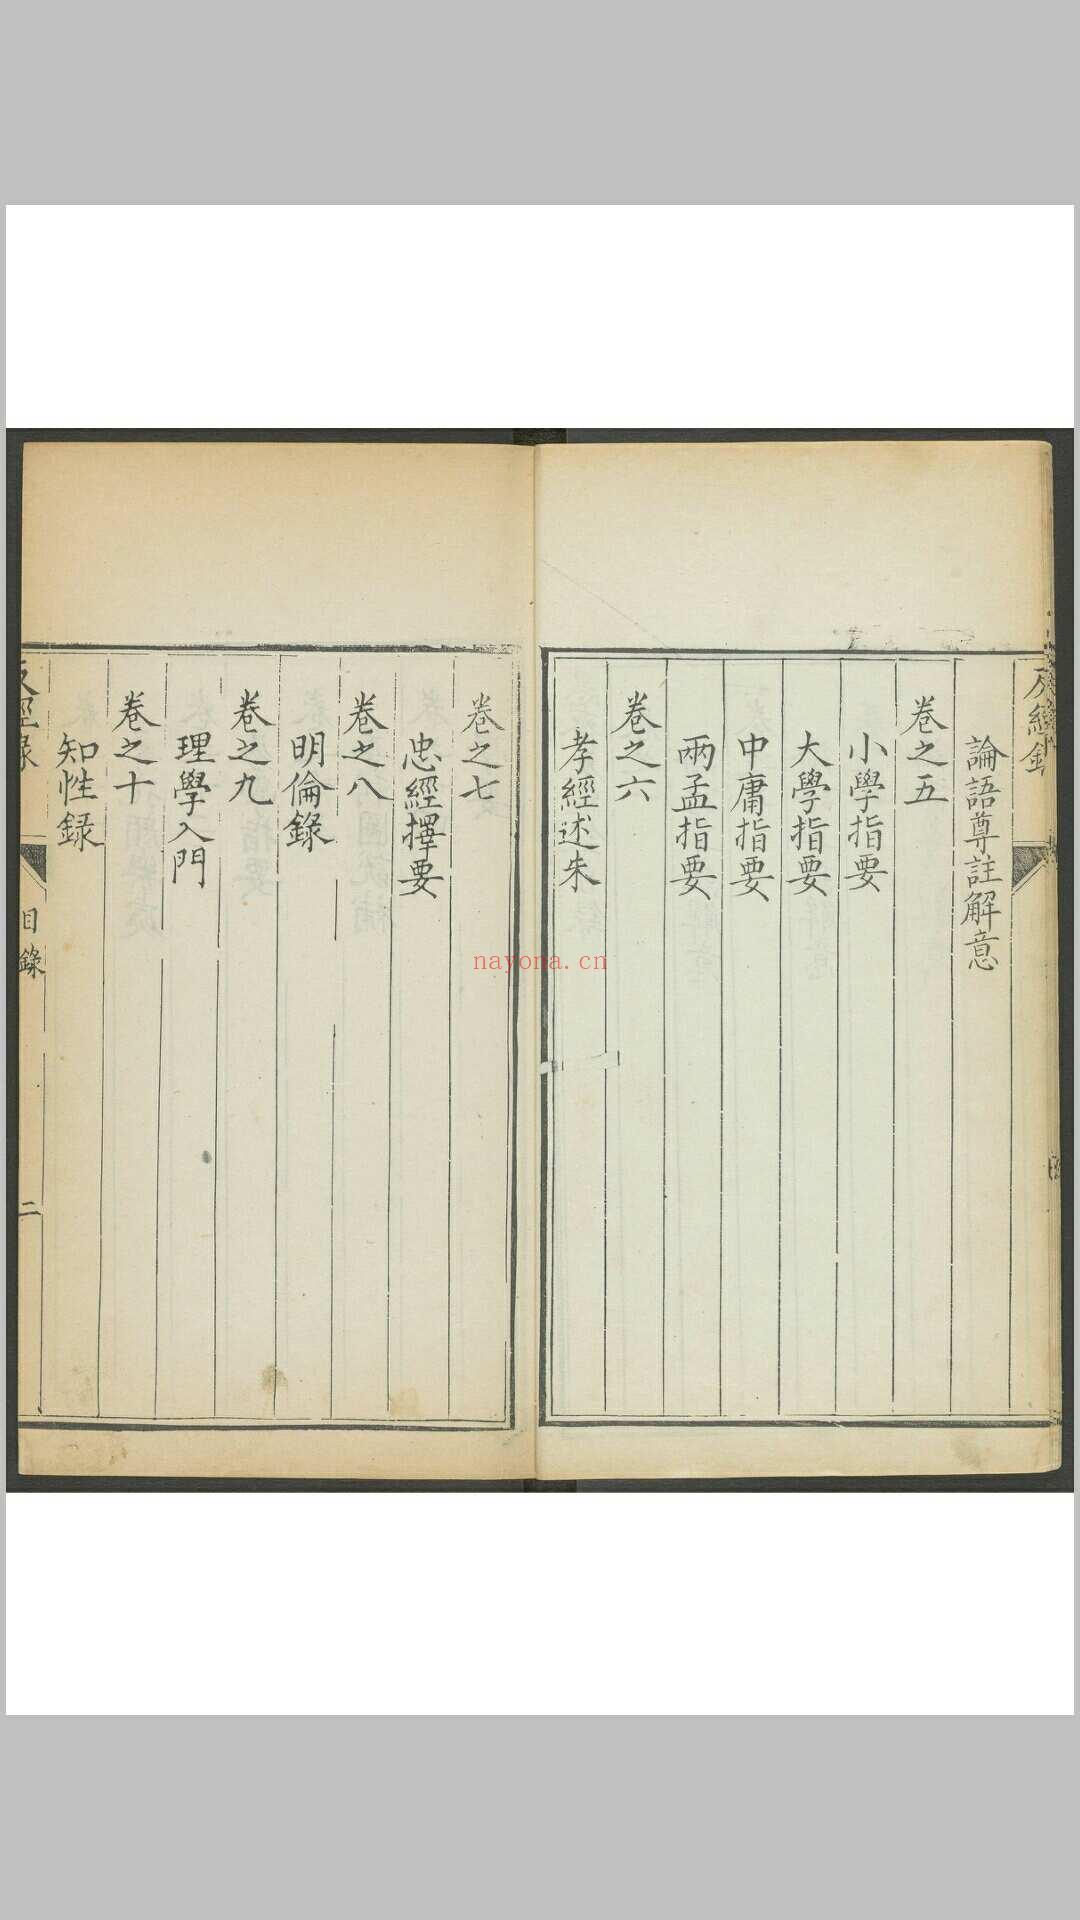 論語尊註解意
卷之五
小學指要
大學指要
中庸指要
兩孟指要
卷之六
孝經述朱
卷之七
忠經擇要
卷之八
明倫錄
卷之九
理學入門
卷之十
知性録
反經録
目錄
二
nayona.cn